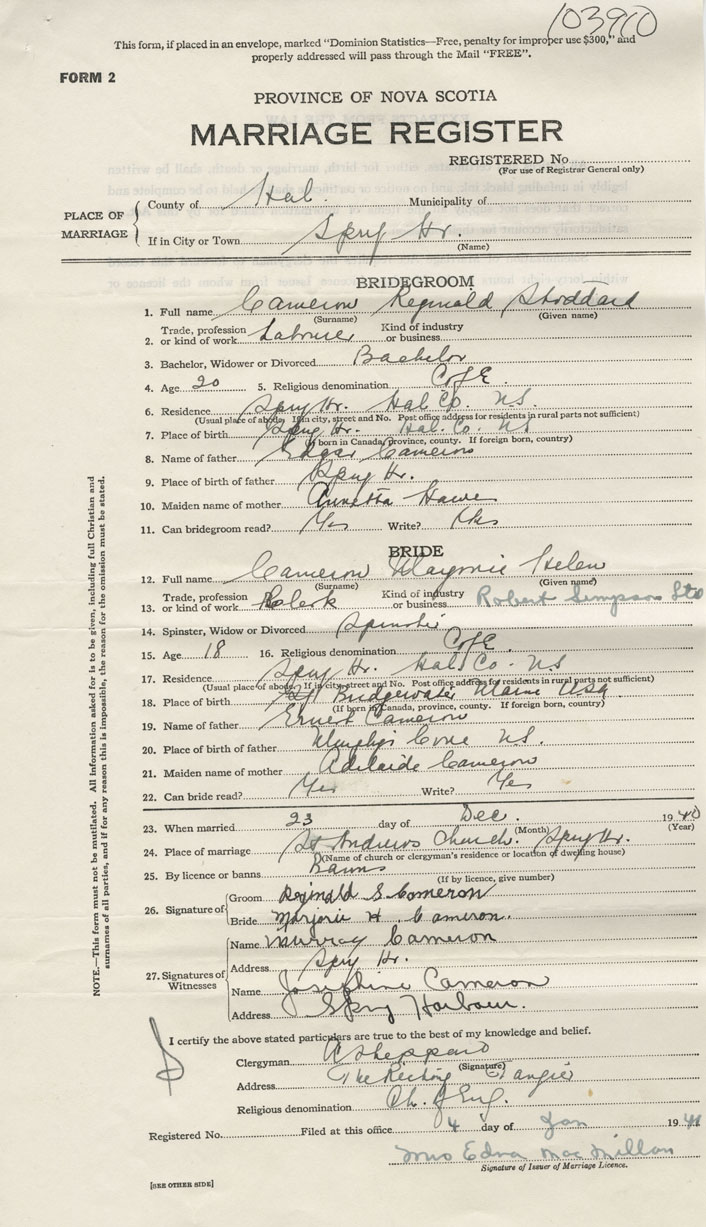 103910
This form, if placed in an envelope, marked "Dominion Statistics—Free, penalty for improper use $300," and
properly addressed will pass through the Mail "FREE".
FORM 2
PROVINCE OF NOVA SCOTIA
MARRIAGE REGISTER
REGISTERED No.
(For use of Registrar General only)
PLACE OF MARRIAGE
County of Hal. Municipality of
If in City or Town Spry Hr.
(Name)
BRIDEGROOM
1. Full name Cameron Reginald Stoddard
(Surname) (Given name)
2. Trade, profession or kind of work Labourer Kind of industry or business
3. Bachelor, Widower or Divorced Bachelor
4. Age 20 5. Religious denomination C of E.
6. Residence Spry Hr. Hal. Co. N.S.
(Usual place of abode. If in city, street and No. Post office address for residents in rural parts not sufficient)
7. Place of birth Spry Hr. Hal. Co. NS
(If born in Canada, province, county. If foreign born, country)
8. Name of father Edgar Cameron
9. Place of birth of father Spry Hr.
10. Maiden name of mother Annetta Hawes
11. Can bridegroom read? Yes Write? Yes
BRIDE
12. Full name Cameron Marjorie Helen
(Surname) (Given name)
13. Trade, profession or kind of work Clerk Kind of industry or business Robert Simpson Ltd
14. Spinster, Widow or Divorced Spinster
15. Age 18 16. Religious denomination C of E.
17. Residence Spry Hr. Hal. Co. N.S
(Usual place of abode. If in city, street and No. Post office address for residents in rural parts not sufficient)
18. Place of birth Bridgewater Maine USA
(If born in Canada, province, county. If foreign born, country)
19. Name of father Ernest Cameron
20. Place of birth of father Murphys Cove N.S.
21. Maiden name of mother Adelaide Cameron
22. Can bride read? Yes Write? Yes
23. When married 23 day of Dec. 1940
(Month) (Year)
24. Place of marriage St Andrews Church. Spry Hr.
(Name of church or clergyman's residence or location of dwelling house)
25. By licence or banns Banns
(If by licence, give number)
26. Signature of Groom Reginald S. Cameron
Bride Marjorie H. Cameron.
27. Signatures of Witnesses
Name Murray Cameron
Address Spry Hr.
Name Josephine Cameron
Address Spry Harbour.
I certify the above stated particulars are true to the best of my knowledge and belief.
Clergyman Sheppard
(Signature)
Address The Rectory Tangier
Religious denomination Ch. of Eng.
Registered No. Filed at this office 4 day of Jan 1941
Mrs Edna MacMillan
Signature of Issuer of Marriage Licence.
[SEE OTHER SIDE]
NOTE.—This form must not be mutilated. All information asked for is to be given, including full Christian and
surnames of all parties, and if for any reason this is impossible, the reason for the omission must be stated.